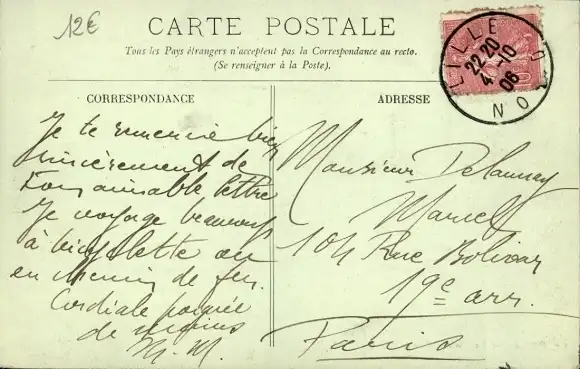 12€
CARTE POSTALE
Tous les Pays étrangers n'acceptent pas la Correspondance au recto.
(Se renseigner à la Poste).
CORRESPONDANCE
Je te remercie bien
sincèrement de
ton aimable lettre
Je voyage beaucoup
à bicyclette ou
en chemin de fer.
Cordiale poignée
de mains
M. M.
ADRESSE
Monsieur Delaunay
Marcel
104 Rue Bolivar
19e arr.
Paris
LILLE
22 20
4 -10
06
NORD